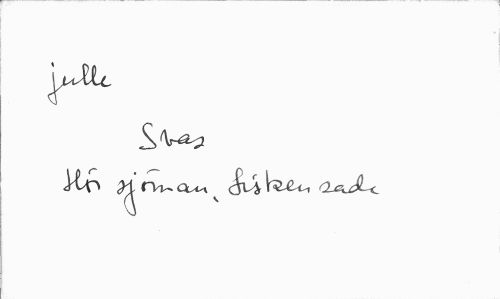 julle
Svar
Hör sjöman, fisken sade